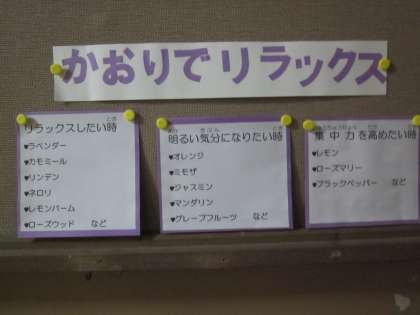 かおりでリラックス
リラックスしたい時
♥ラベンダー
♥カモミール
♥リンデン
♥ネロリ
♥レモンバーム
♥ローズウッド など
明るい気分になりたい時
♥オレンジ
♥ミモザ
♥ジャスミン
♥マンダリン
♥グレープフルーツ など
集中力を高めたい時
♥レモン
♥ローズマリー
♥ブラックペッパー など